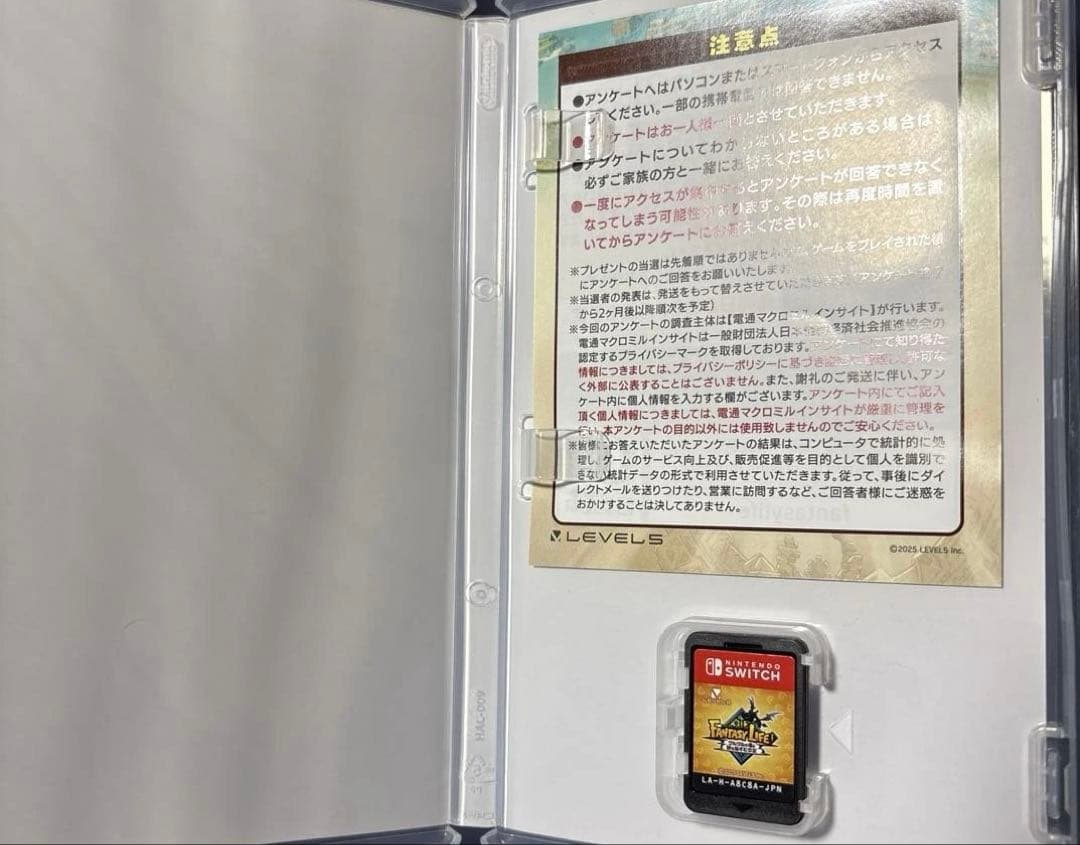 注意点
●アンケートへはパソコンまたはスマートフォンからアクセス
ください。一部の携帯 できません。
●アンケートはお一人様一回とさせていただきます。
●アンケートについてわからないところがある場合は、
必ずご家族の方と一緒にお答えください。
●一度にアクセスが集中するとアンケートが回答できなく
なってしまう可能性があります。その際は再度時間を置
いてからアンケートにお答えください。
※プレゼントの当選は先着順ではありません ゲームをプレイされた後
にアンケートへのご回答をお願いいたします
※当選者の発表は、発送をもって替えさせていただきます アンケート
から2ヶ月後以降順次を予定)
※今回のアンケートの調査主体は【電通マクロミルインサイト】が行います。
電通マクロミルインサイトは一般財団法人日本情報経済社会推進協会の
認定するプライバシーマークを取得しております。アンケートにて知り得た
情報につきましては、プライバシーポリシーに基づき 許可な
く外部に公表することはございません。また、謝礼のご発送に伴い、アン
ケート内に個人情報を入力する欄がございます。アンケート内にてご記入
頂く個人情報につきましては、電通マクロミルインサイトが厳重に管理を
行い、本アンケートの目的以外には使用致しませんのでご安心ください。
※皆様にお答えいただいたアンケートの結果は、コンピュータで統計的に処
理し、ゲームのサービス向上及び、販売促進等を目的として個人を識別で
きない統計データの形式で利用させていただきます。従って、事後にダイ
レクトメールを送りつけたり、営業に訪問するなど、ご回答者様にご迷惑を
おかけすることは決してありません。
LEVEL5
©2025 LEVEL5 Inc.
HAC-009
NINTENDO
SWITCH
FANTASY LIFE i
LA-H-A8C8A-JPN